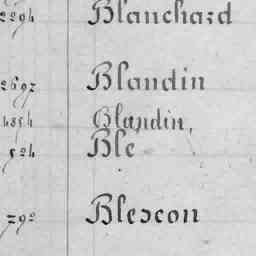 2294 Blanchard
2692 Blandin
Blandin,
524 Blé
792 Blescon